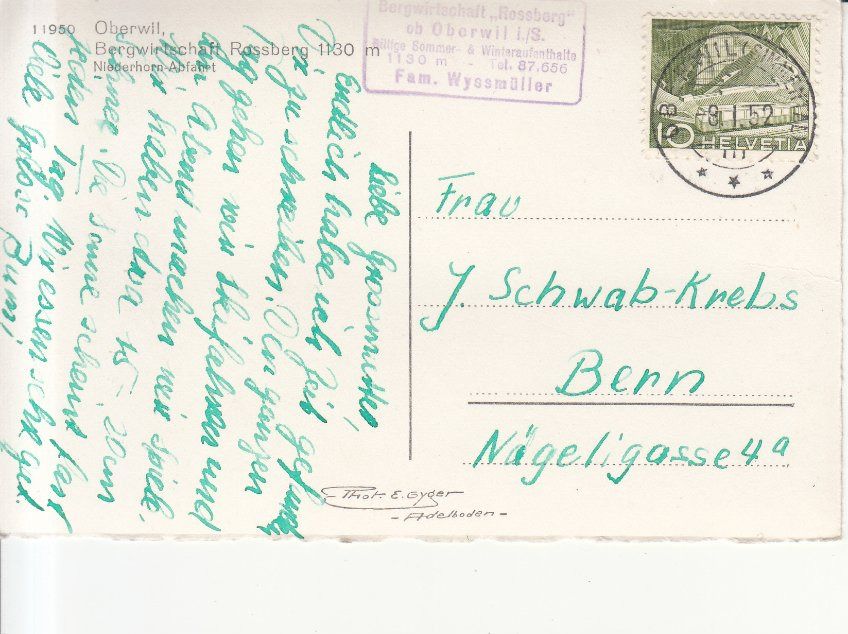 11950 Oberwil,
Bergwirtschaft Rossberg 1130 m
Niederhorn-Abfahrt
Bergwirtschaft „Rossberg"
ob Oberwil i./S.
Billige Sommer- & Winteraufenthalte
1130 m - Tel. 87,656
Fam. Wyssmüller
8.I.52
10 HELVETIA
Liebe Grossmutter,
Endlich habe ich Zeit gefunden
Dir zu schreiben. Den ganzen
Tag gehen wir Skifahren und
am Abend machen wir Spiele.
Wir haben da 15-20 cm
Die Sonne scheint fast
jeden Tag. Wir essen sehr gut.
Viele Grüsse
Frau
J. Schwab-Krebs
Bern
Nägeligasse 4a
Phot. E. Gyger
- Adelboden -